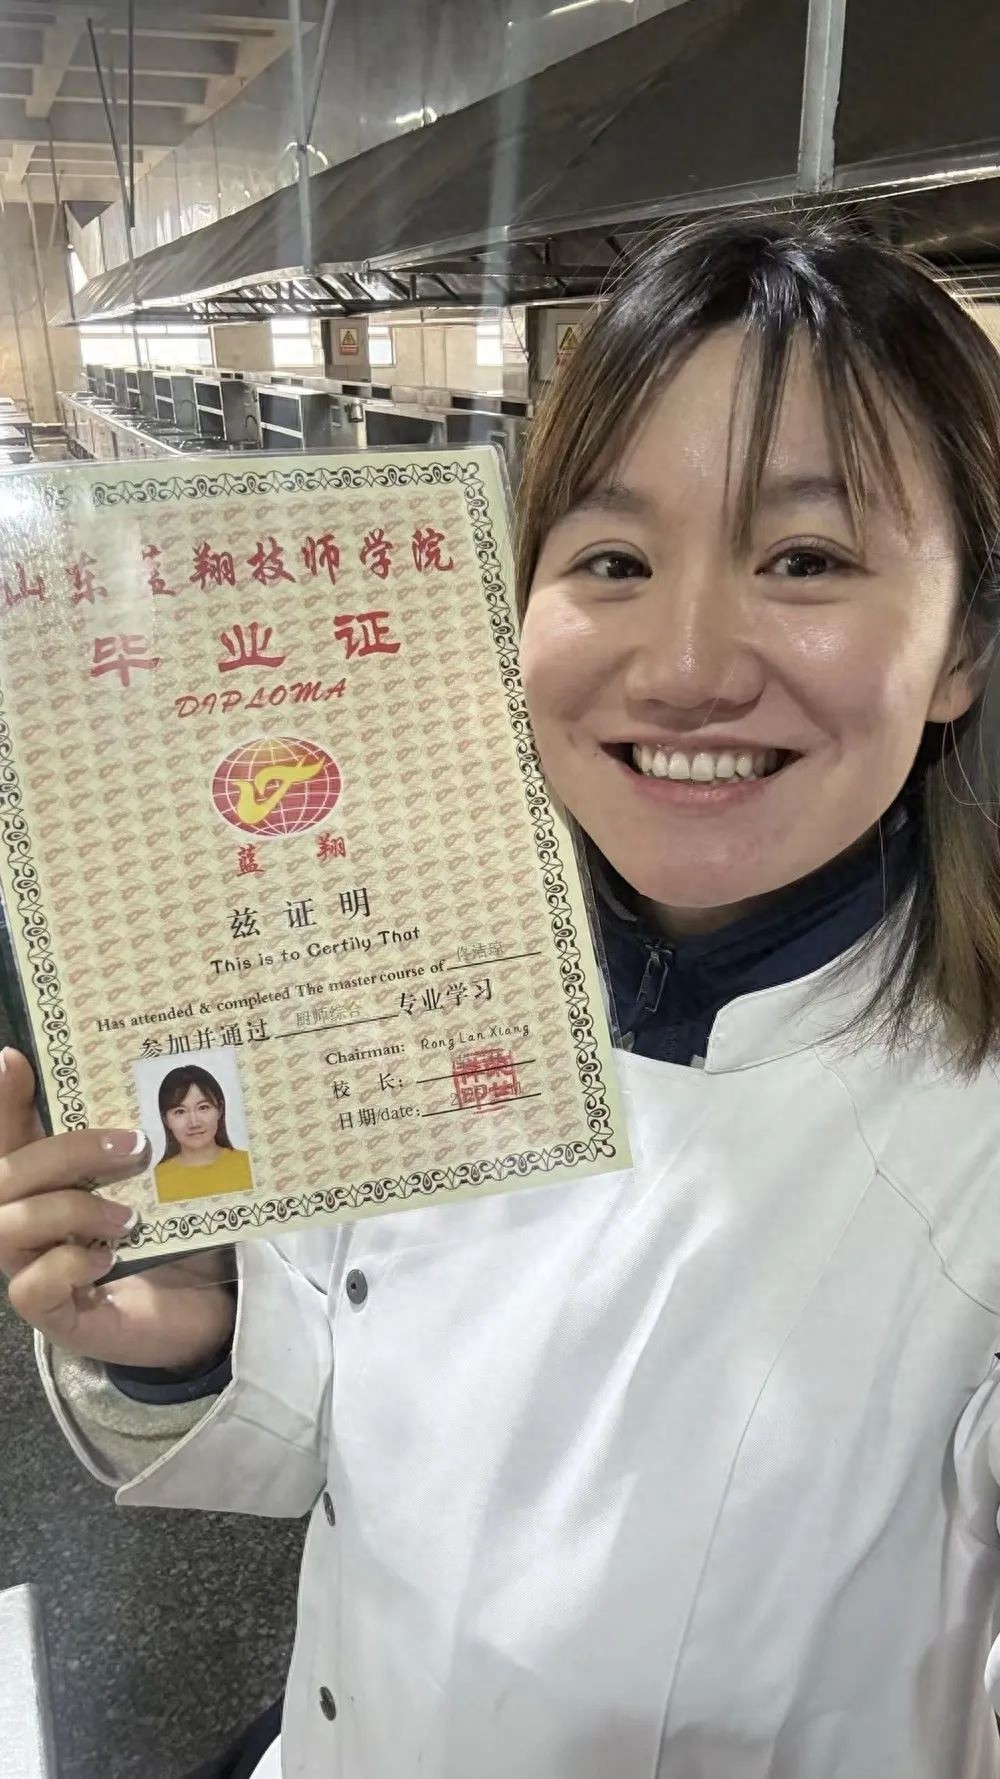 山东蓝翔技师学院
毕业证
DIPLOMA
蓝翔
兹证明
This is to Certily That
Has attended & completed The master course of 佟洁琼
参加并通过 厨师综合 专业学习
Chairman: Rong Lan Xiang
校 长:
日期/date: